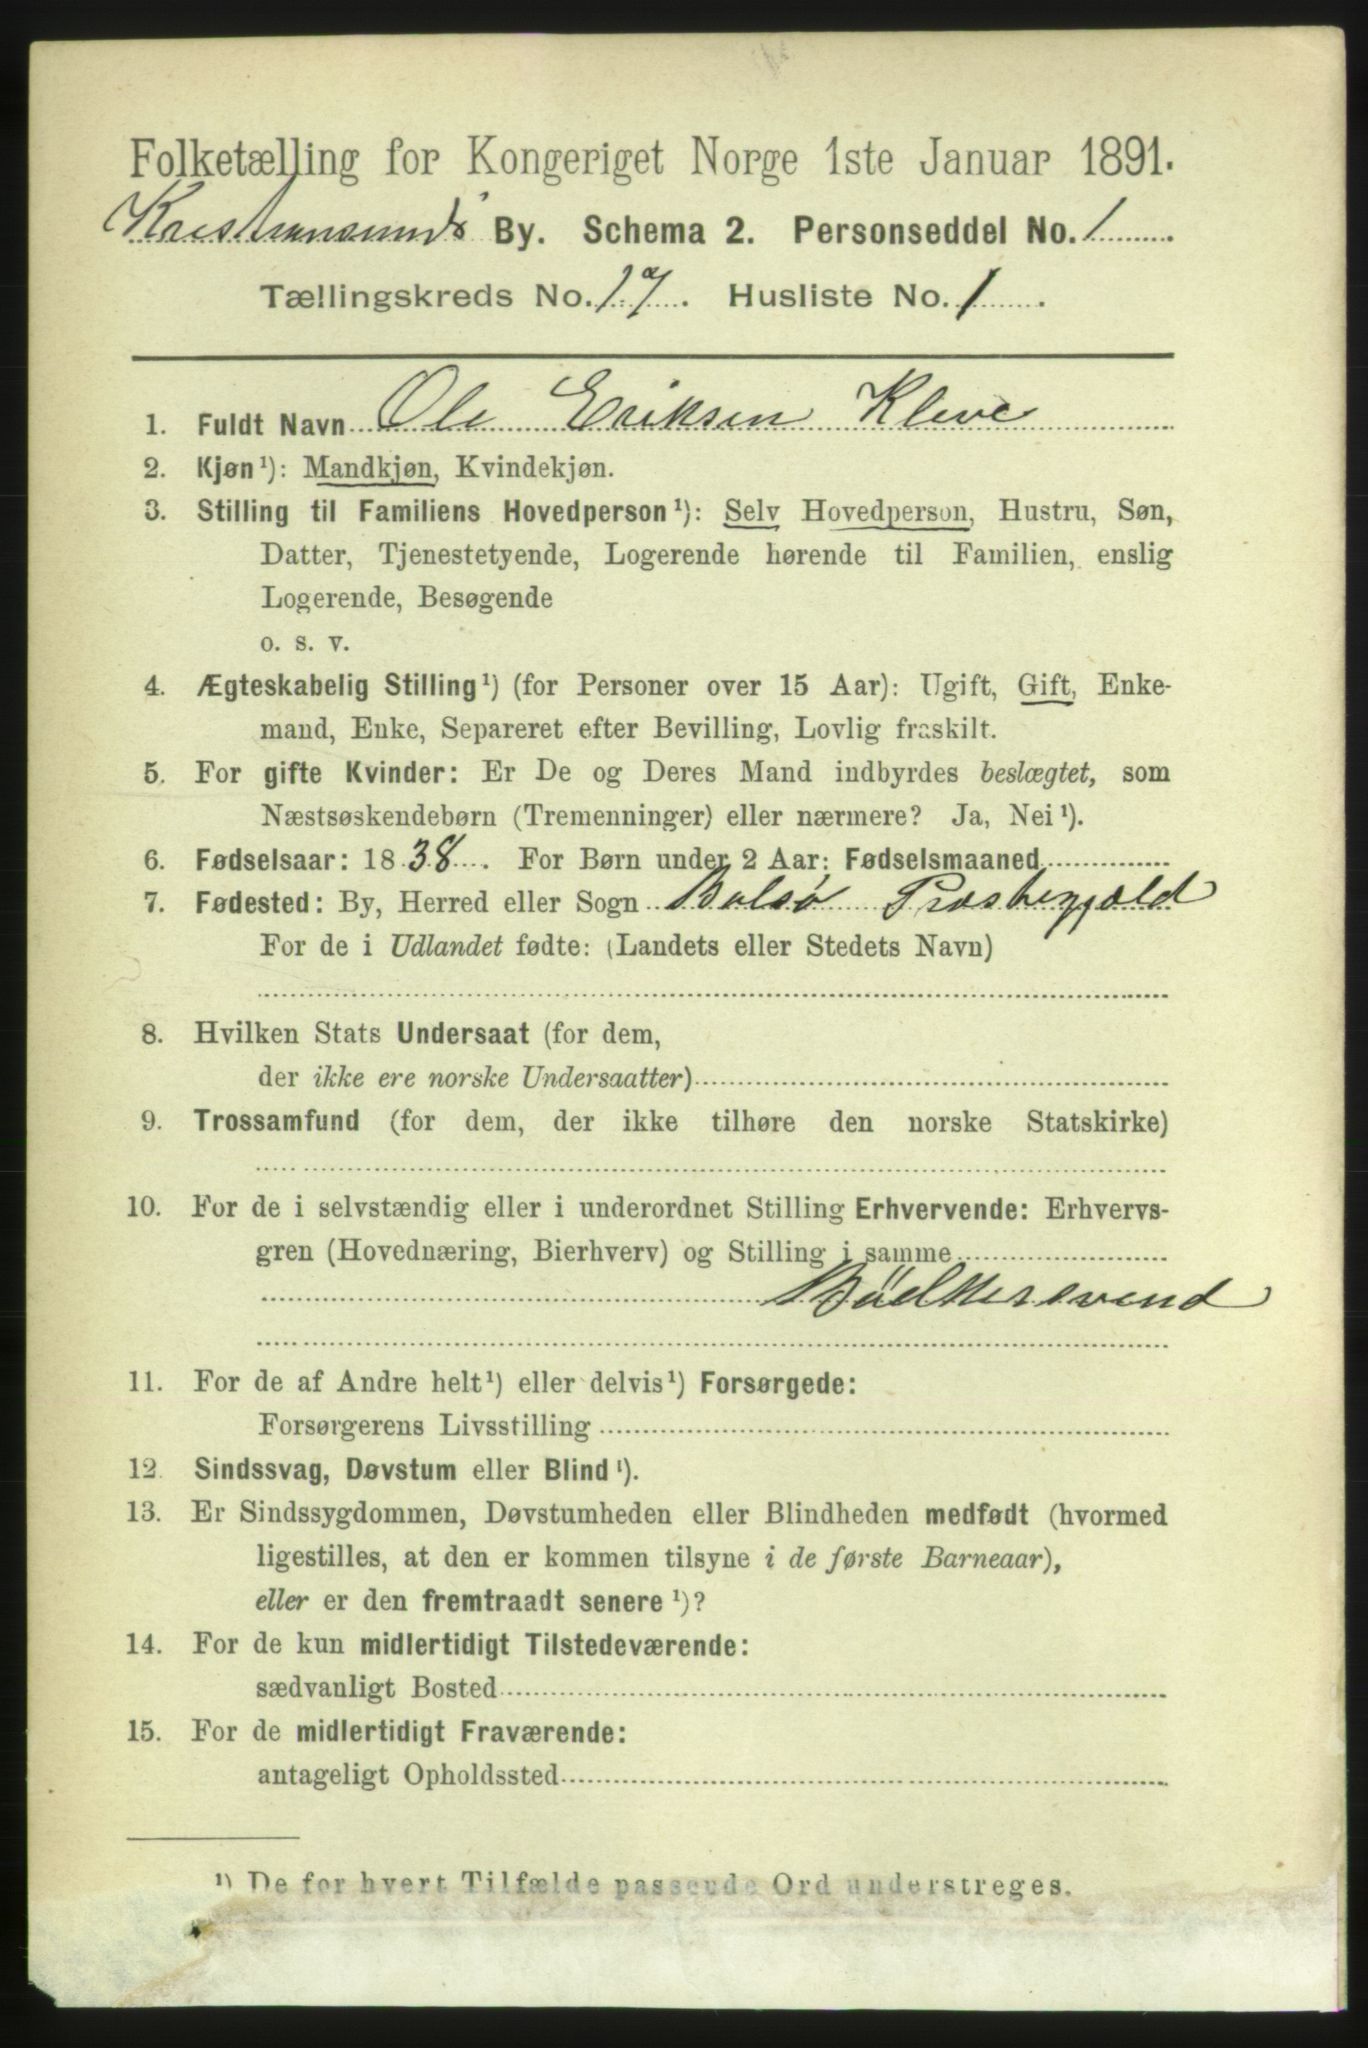 Folketælling for Kongeriget Norge 1ste Januar 1891.
Kristiansunds By. Schema 2. Personseddel No. 1
Tællingskreds No. 17. Husliste No. 1.
1. Fuldt Navn Ole Eriksen Kleve
2. Kjøn¹): Mandkjøn, Kvindekjøn.
3. Stilling til Familiens Hovedperson¹): Selv Hovedperson, Hustru, Søn,
Datter, Tjenestetyende, Logerende hørende til Familien, enslig
Logerende, Besøgende
o. s. v.
4. Ægteskabelig Stilling¹) (for Personer over 15 Aar): Ugift, Gift, Enke-
mand, Enke, Separeret efter Bevilling, Lovlig fraskilt.
5. For gifte Kvinder: Er De og Deres Mand indbyrdes beslægtet, som
Næstsøskendebørn (Tremenninger) eller nærmere? Ja, Nei¹).
6. Fødselsaar: 1838. For Børn under 2 Aar: Fødselsmaaned
7. Fødested: By, Herred eller Sogn Bolsø Præstegjæld
For de i Udlandet fødte: (Landets eller Stedets Navn)
8. Hvilken Stats Undersaat (for dem,
der ikke ere norske Undersaatter)
9. Trossamfund (for dem, der ikke tilhøre den norske Statskirke)
10. For de i selvstændig eller i underordnet Stilling Erhvervende: Erhvervs-
gren (Hovednæring, Bierhverv) og Stilling i samme
Bödkersvend
11. For de af Andre helt¹) eller delvis¹) Forsørgede:
Forsørgerens Livsstilling
12. Sindssvag, Døvstum eller Blind¹).
13. Er Sindssygdommen, Døvstumheden eller Blindheden medfødt (hvormed
ligestilles, at den er kommen tilsyne i de første Barneaar),
eller er den fremtraadt senere¹)?
14. For de kun midlertidigt Tilstedeværende:
sædvanligt Bosted
15. For de midlertidigt Fraværende:
antageligt Opholdssted
¹) De for hvert Tilfælde passende Ord understreges.